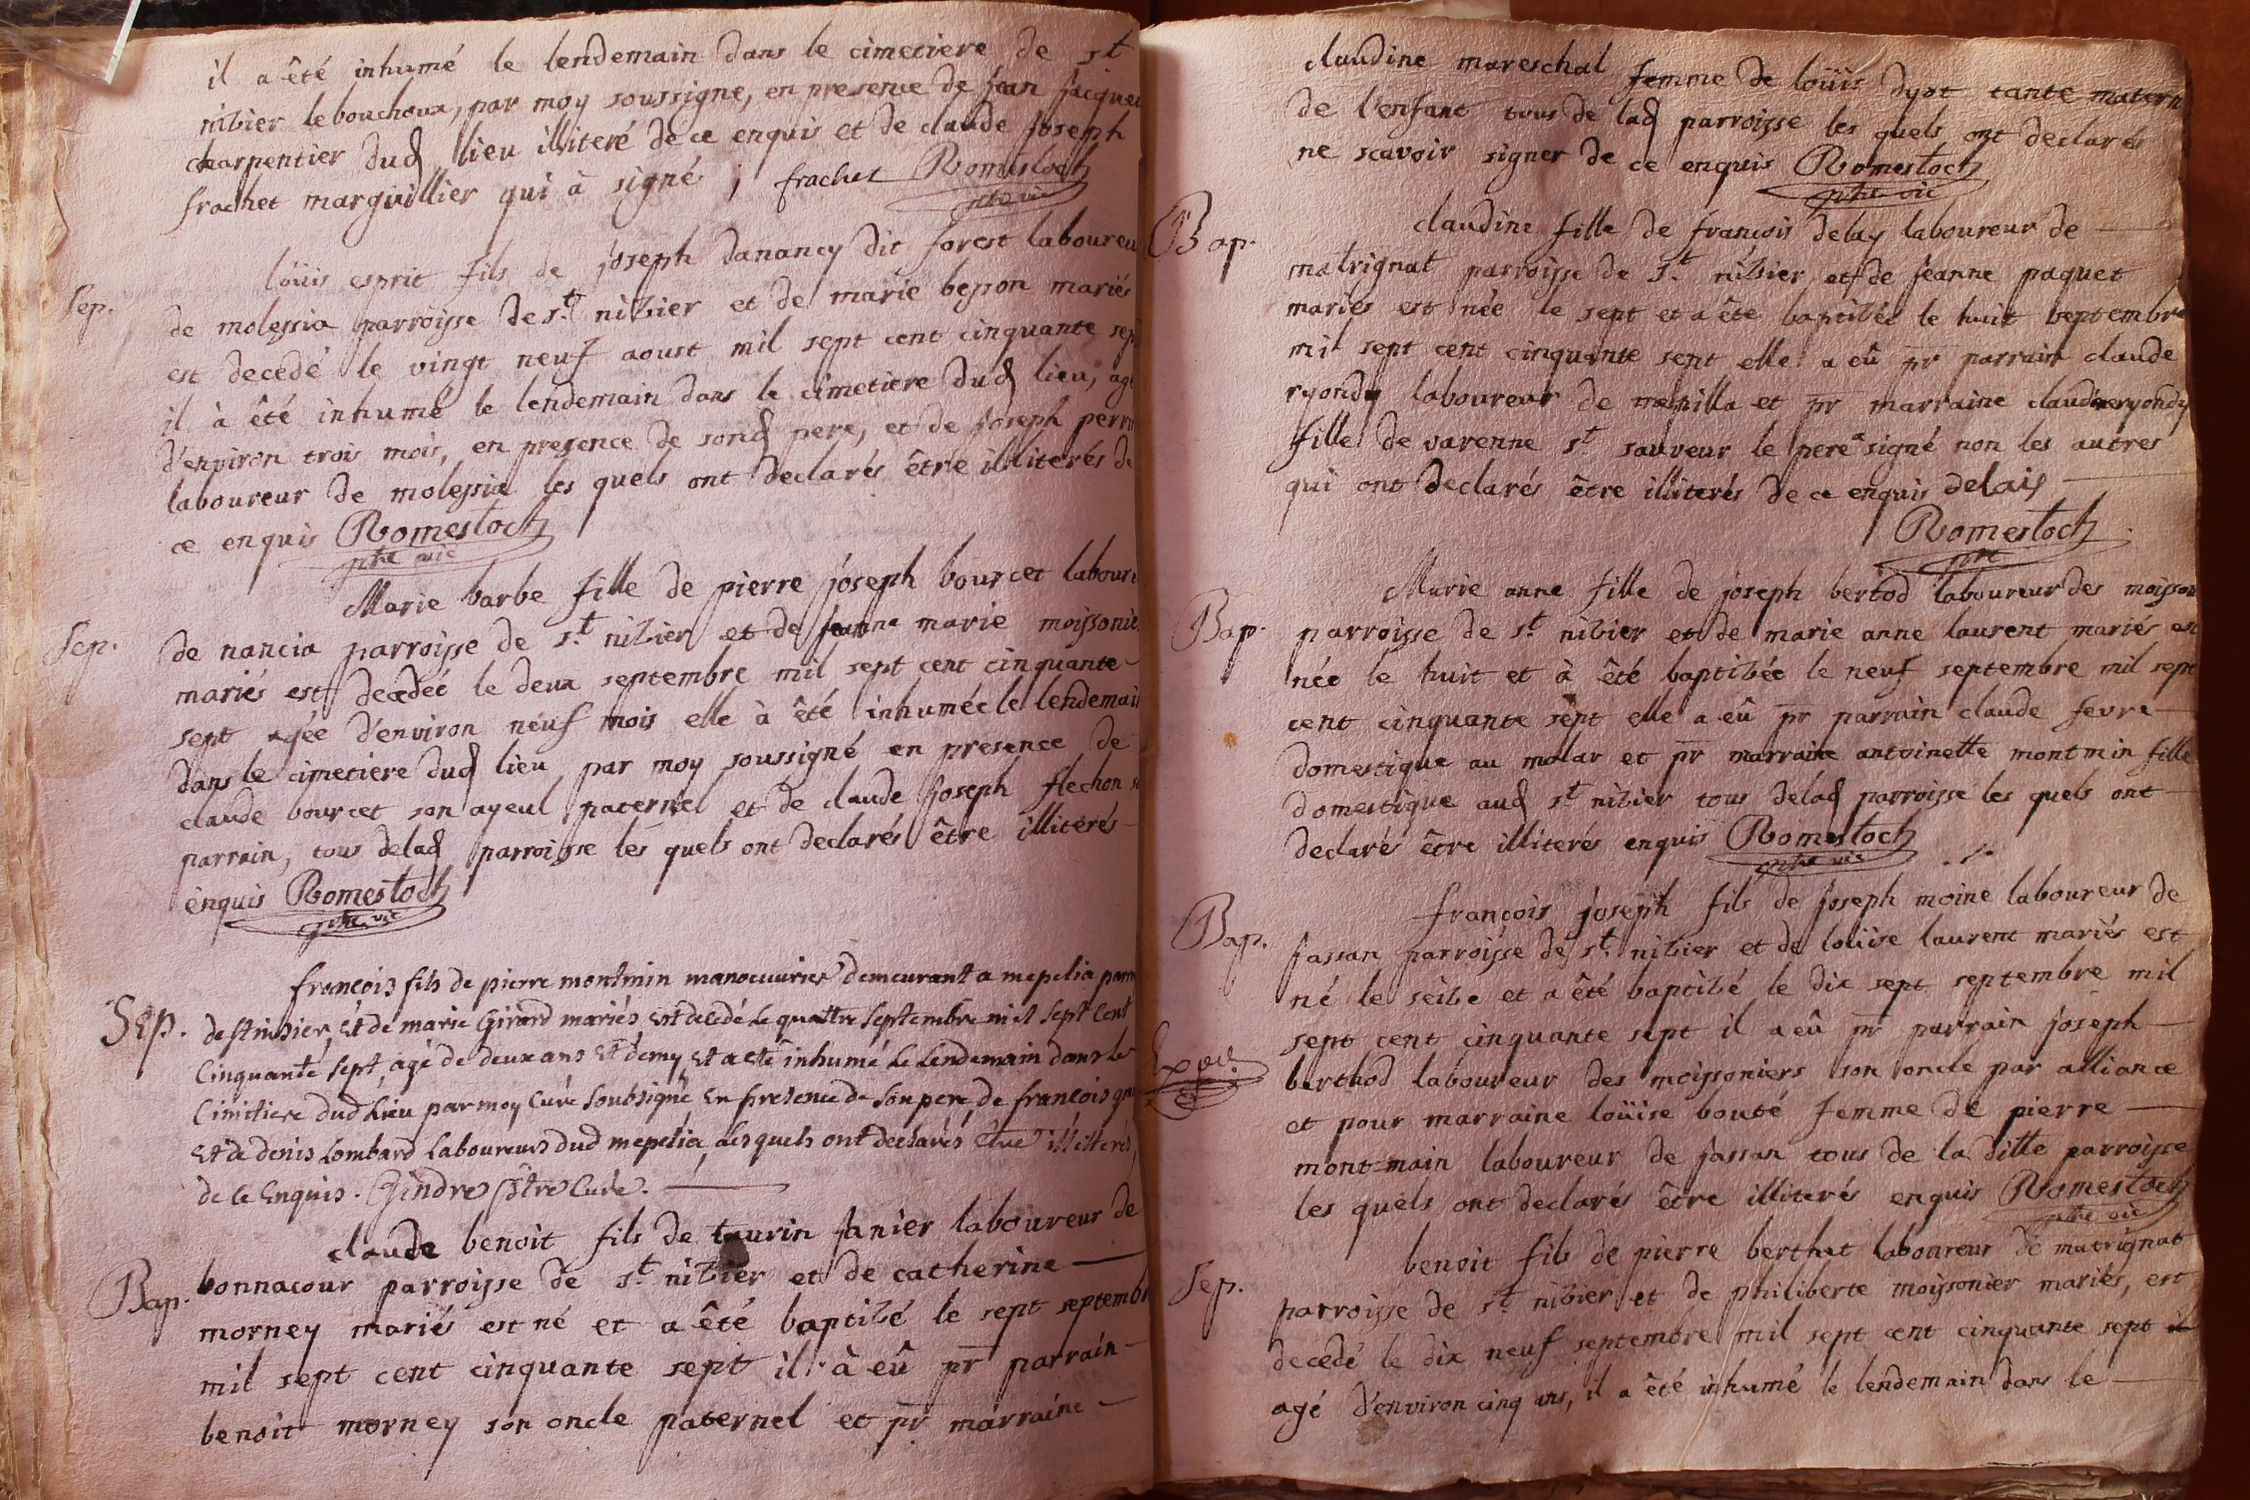 il a êté inhumé le lendemain dans le cimetiere de st
nizier le bouchoux, par moy soussigne, en presence de jean jacques
charpentier dud lieu illiteré de ce enquis et de claude joseph
frachet marguillier qui à signé ; frachet Romestoch
ptre vic
Sep.
loüis esprit fils de joseph danancy dit forest laboureu
de molessia parroisse de st nizier et de marie besson mariés
est decedé le vingt neuf aoust mil sept cent cinquante sept
il à êté inhumé le lendemain dans le cimetiere dud lieu, agé
d'environ trois mois, en presence de sond pere, et de joseph
laboureur de molessia les quels ont declarés être illiterés de
ce enquis Romestoch
ptre vic
Sep.
Marie barbe fille de pierre joseph bourcet laboure
de nancia parroisse de st nizier et de jeanne marie moissonie
mariés est decedeé le deux septembre mil sept cent cinquante
sept agée d'environ neuf mois elle à êté inhumée le lendemain
dans le cimetiere dud lieu par moy soussigné en presence de
claude bourcet son ayeul paternel et de claude joseph flechon
parrain, tous delad parroisse les quels ont declarés être illiterés
enquis Romestoch
ptre vic
Sep.
françois fils de pierre montmin manoeuvrier demeurant a mepelia
de st nisier, et de marie Girard mariés est decedé le quattre septembre mil sept cent
cinquante sept, agé de deux ans et demy, et a eté inhumé le lendemain dans le
cimitiere dud lieu par moy curé soubsigné en presence de son pere, de françois
et de denis Lombard laboureurs dud mepelia, lesquels ont declarés être illitterés,
de ce enquis. Gindre ptre curé.
Bap.
claude benoit fils de taurin janier laboureur de
bonnacour parroisse de st nizier et de catherine
morney mariés est né et a êté baptizé le sept septemb
mil sept cent cinquante sept il à eû pr parrain
benoit morney son oncle paternel et pr marraine
claudine mareschal femme de loüis dyot tante matern
de l'enfant tous de lad parroisse les quels ont declarés
ne scavoir signer de ce enquis Romestoch
ptre vic
Bap.
claudine fille de françois delay laboureur de
matrignat parroisse de st nizier et de jeanne paquet
mariés est née le sept et a êté baptizée le huit septembre
mil sept cent cinquante sept elle a eû pr parrain claude
ryondy laboureur de mepilla et pr marraine claudine ryondy
fille de varenne st sauveur le pere a signé non les autres
qui ont declarés être illiterés de ce enquis delais
Romestoch
ptre
Bap.
Marie anne fille de joseph bertod laboureur des moisson
parroisse de st nizier et de marie anne laurent mariés est
née le huit et à êté baptizée le neuf septembre mil sept
cent cinquante sept elle a eû pr parrain claude fevre
domestique au molar et pr marraine antoinette montmin fille
domestique aud st nizier tous delad parroisse les quels ont
declarés être illiterés enquis Romestoch
ptre vic
Bap.
françois joseph fils de joseph moine laboureur de
jassan parroisse de st nizier et de loüise laurent mariés est
né le seize et a êté baptizé le dix sept septembre mil
sept cent cinquante sept il a eû pr parrain joseph
berthod laboureur des moissoniers son oncle par alliance
et pour marraine loüise bouté femme de pierre
mont-main laboureur de jassan tous de la ditte parroisse
les quels ont declarés être illiterés enquis Romestoch
ptre vic
Sep.
benoit fils de pierre berthet laboureur de matrignat
parroisse de st nizier et de philiberte moissonier mariés, est
decedé le dix neuf septembre mil sept cent cinquante sept
agé d'environ cinq ans, il a êté inhumé le lendemain dans le